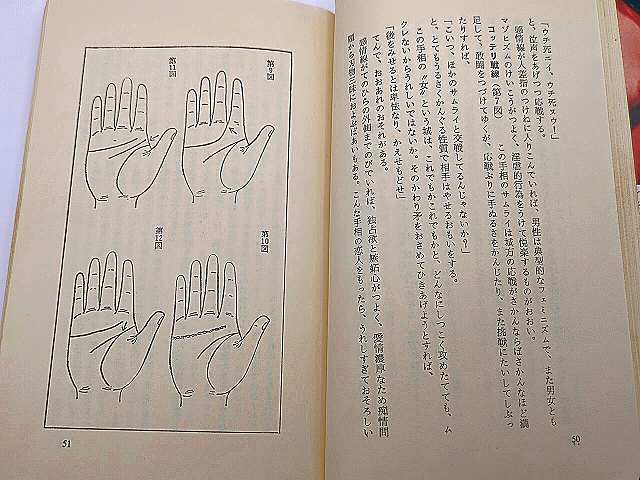 「ウチ死ニイ、ウチ死ヌウ！」
と、泣声をあげつつ応戦する。
感情線が人差指のつけねに入りこんでいれば、男性は典型的なフェミニズムで、また男女とも
マゾヒズムのけいこうがつよく、淫虐的行為をうけて悦楽するものがおおい。
コッテリ戦線（第７図）　この手相のサムライは城方の応戦がさかんならばさかんなほど満
足して、敢闘をつづけてゆくが、応戦ぶりに手ぬるさをかんじたり、また挑戦にたいしてしぶっ
たりすれば、
「こいつ、ほかのサムライと交戦してるんじゃないか？」
と、とてもうるさくかんぐる性質で相手はやせるおもいをする。
この手相の〝女〟という城は、これでもかこれでもかと、どんなにしつこく攻めたてても、ム
クレないからうれしいではないか。そのかわり矛をおさめてひきあげようとすれば、
「後をみせるとは卑怯なり、かえせもどせ」
てんで、おおあれのおそれがある。
感情線がてのひらの外側までのびていれば、独占欲と嫉妬心がつよく、愛情濃厚なため痴情問
題から刃物三昧におよぶばあいもある。こんな手相の恋人をもったら、うれしすぎておそろしい
50
第9図
第10図
第11図
第12図
51